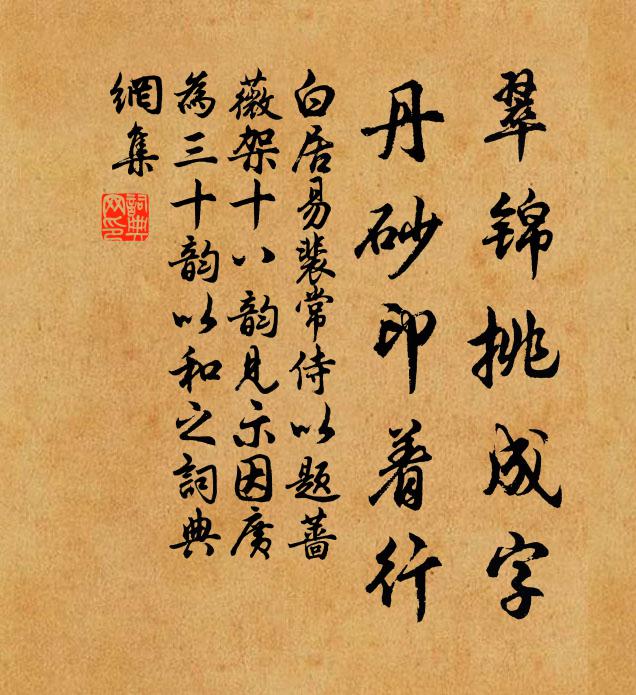 翠锦挑成字
丹砂印着行
白居易裴常侍以题蔷
薇架十八韵见示因广
为三十韵以和之词典
網集
詞典网印